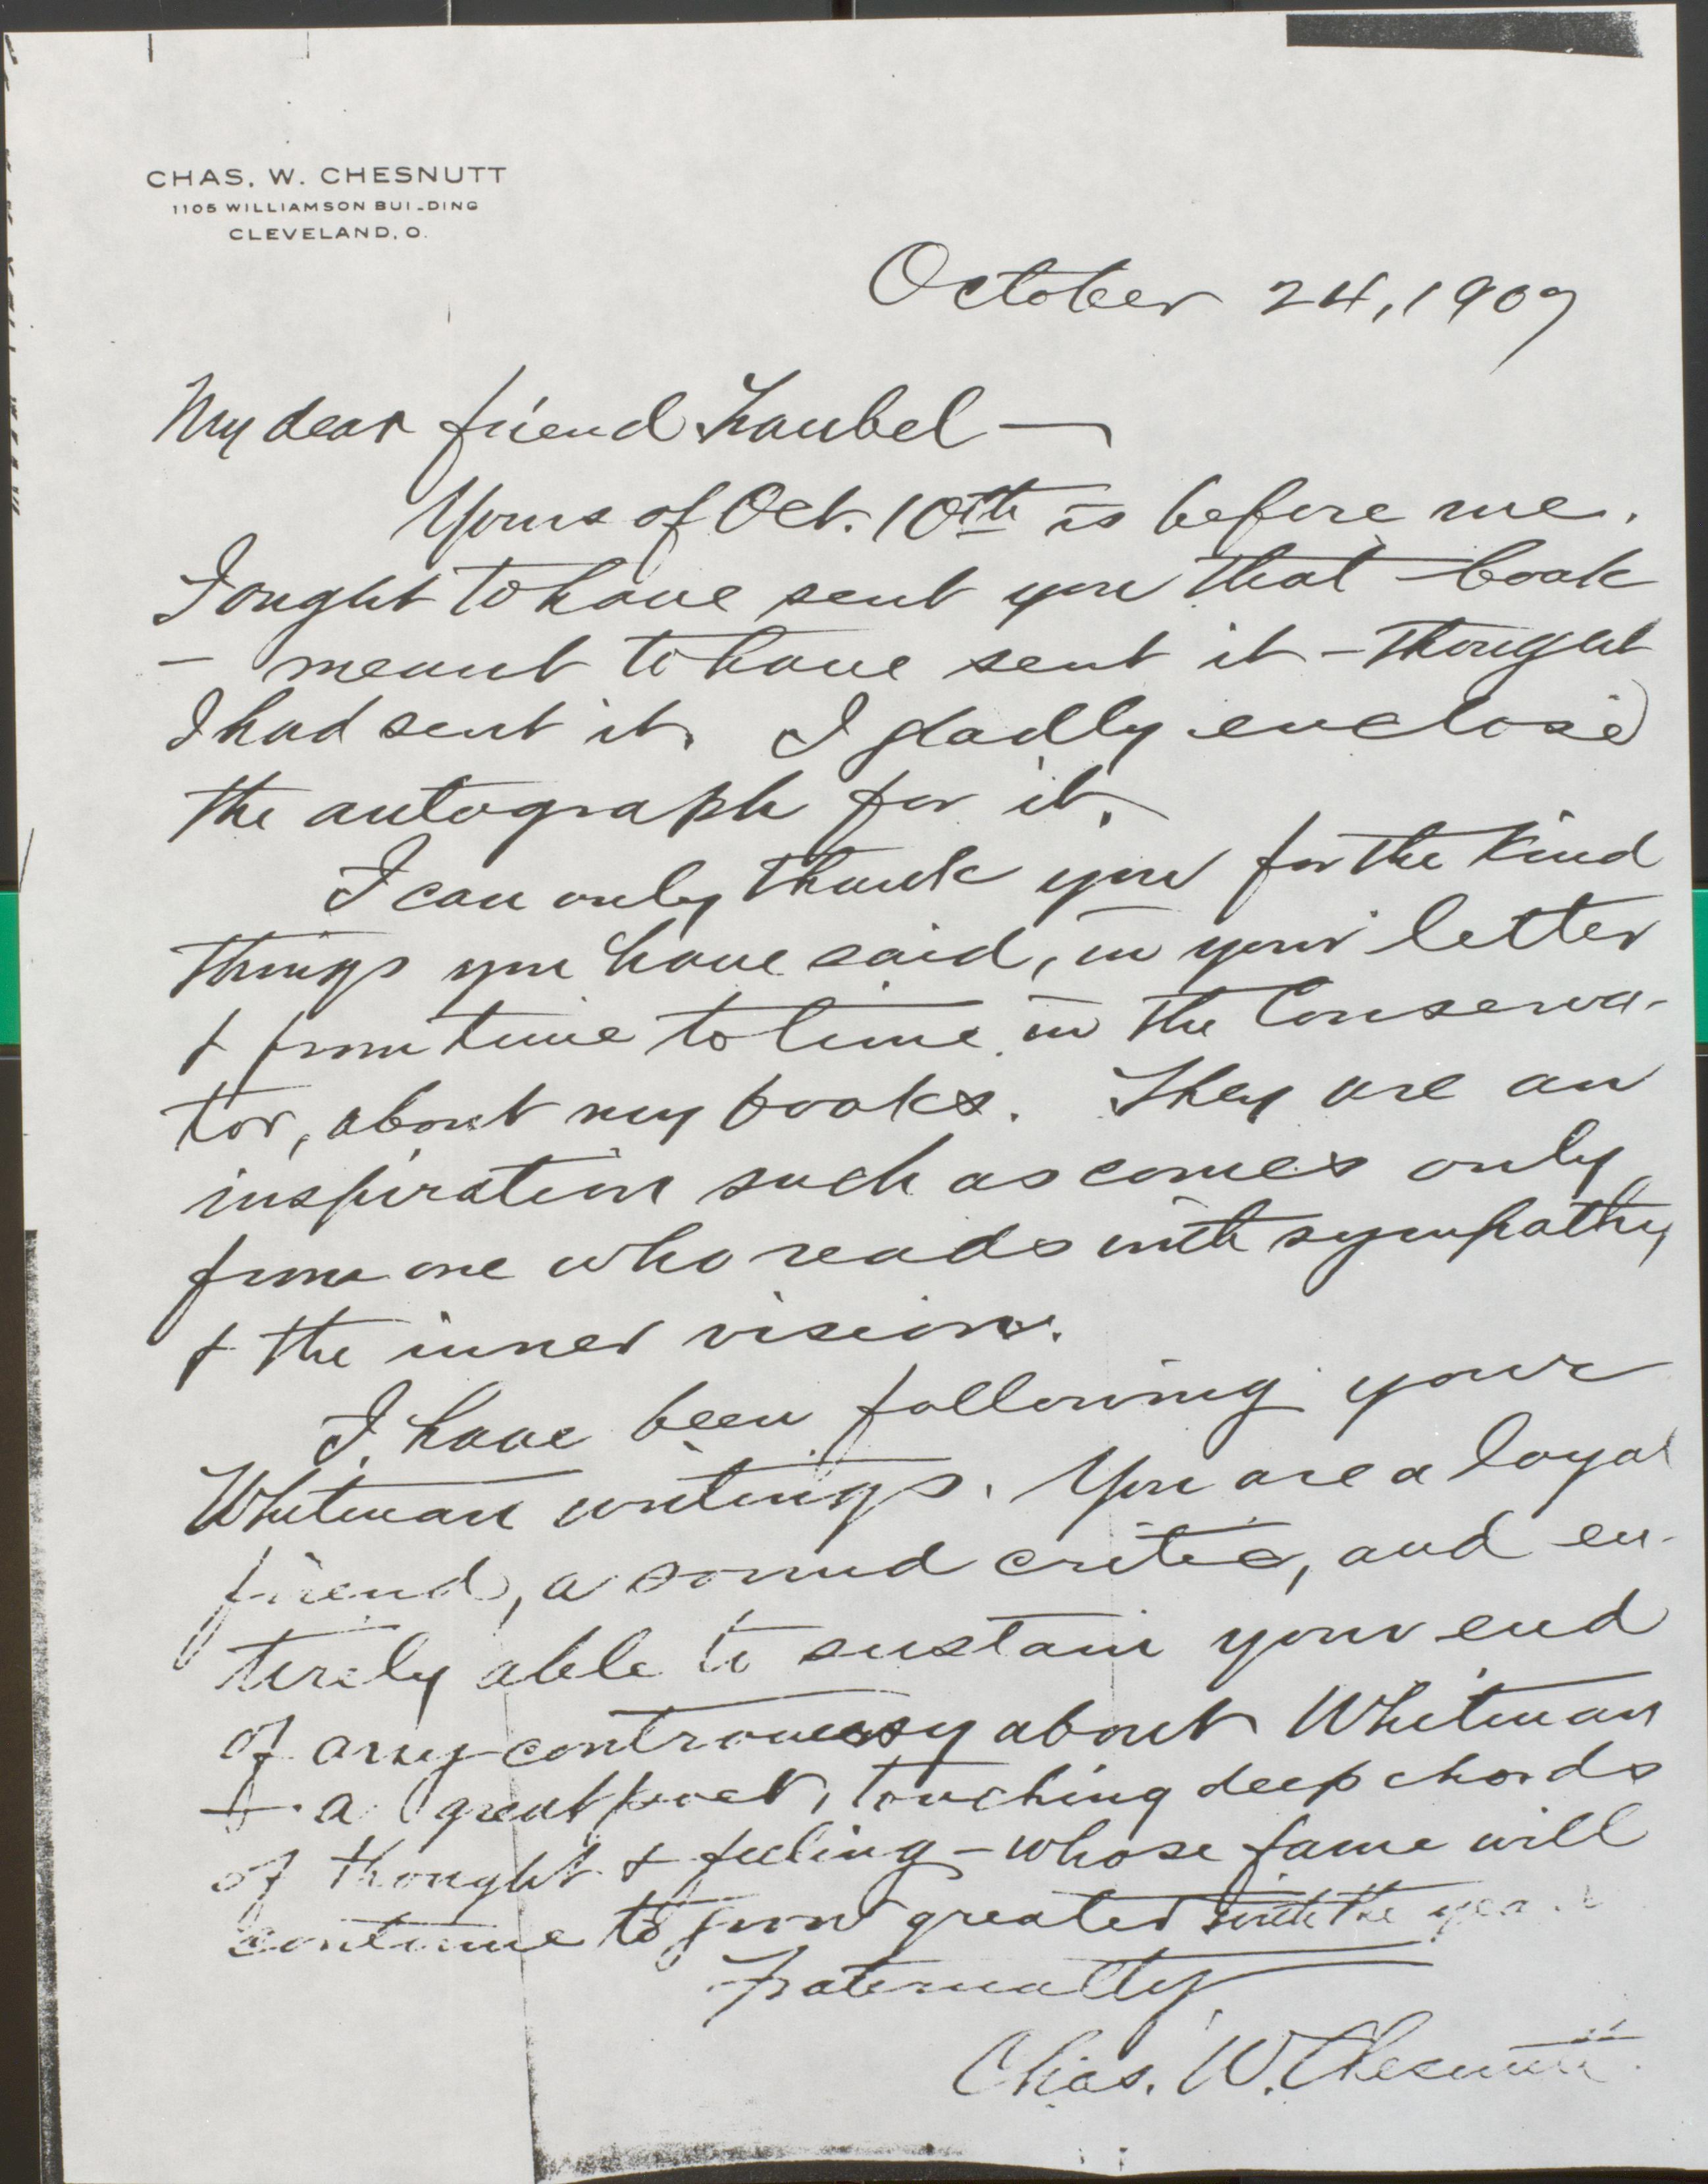 CHAS. W. CHESNUTT
1105 WILLIAMSON BUILDING
CLEVELAND, O.
October 24, 1909
My dear friend Traubel —
Yours of Oct. 10th is before me.
I ought to have sent you that book
— meant to have sent it — thought
I had sent it. I gladly enclose
the autograph for it.
I can only thank you for the kind
things you have said, in your letter
& from time to time in the Conserva-
tor, about my books. They are an
inspiration such as comes only
from one who reads with sympathy
& the inner vision.
I have been following your
Whitman writings. You are a loyal
friend, a sound critic, and en-
tirely able to sustain your end
of any controversy about Whitman
— a great poet, touching deep chords
of thought & feeling — whose fame will
continue to grow greater with the years
Fraternally
Chas. W. Chesnutt